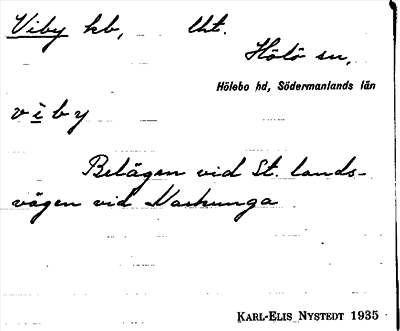 Viby kb, lht.
Hölö sn,
Hölebo hd, Södermanlands län
viby
Belägen vid St. lands-
vägen vid Naskunga
KARL-ELIS NYSTEDT 1935